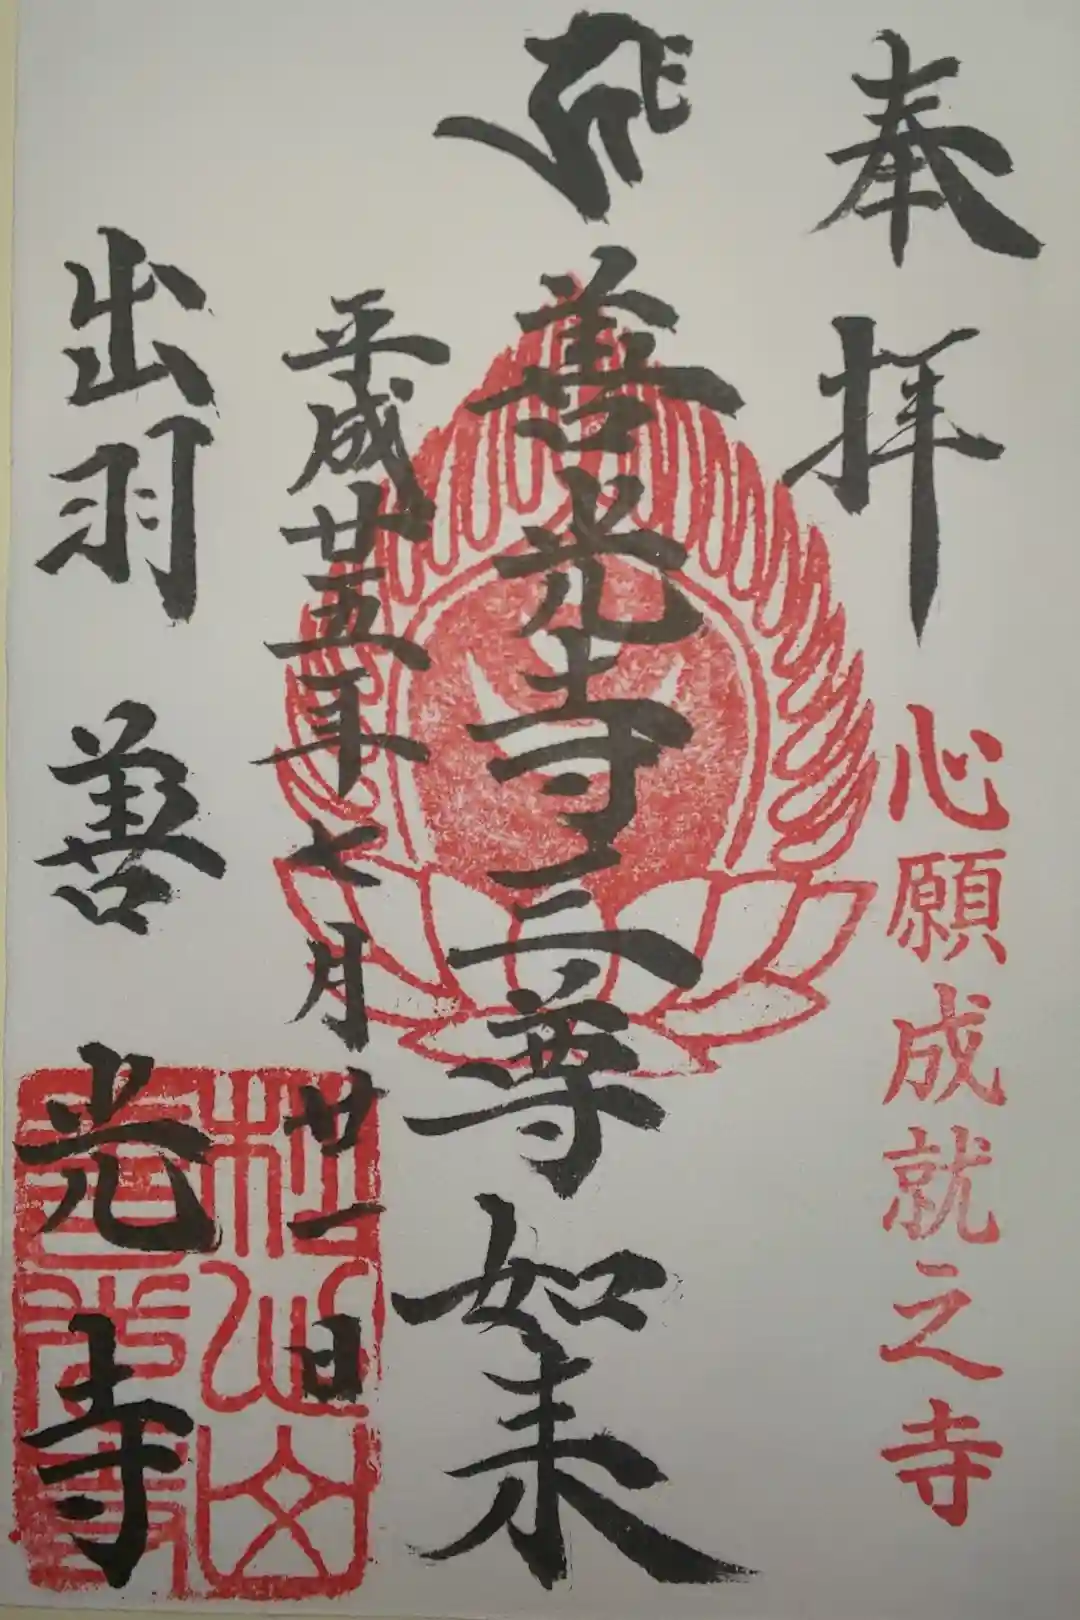 奉拝
心願成就之寺
善光寺三尊如来
平成廿五年七月廿一日
出羽 善光寺